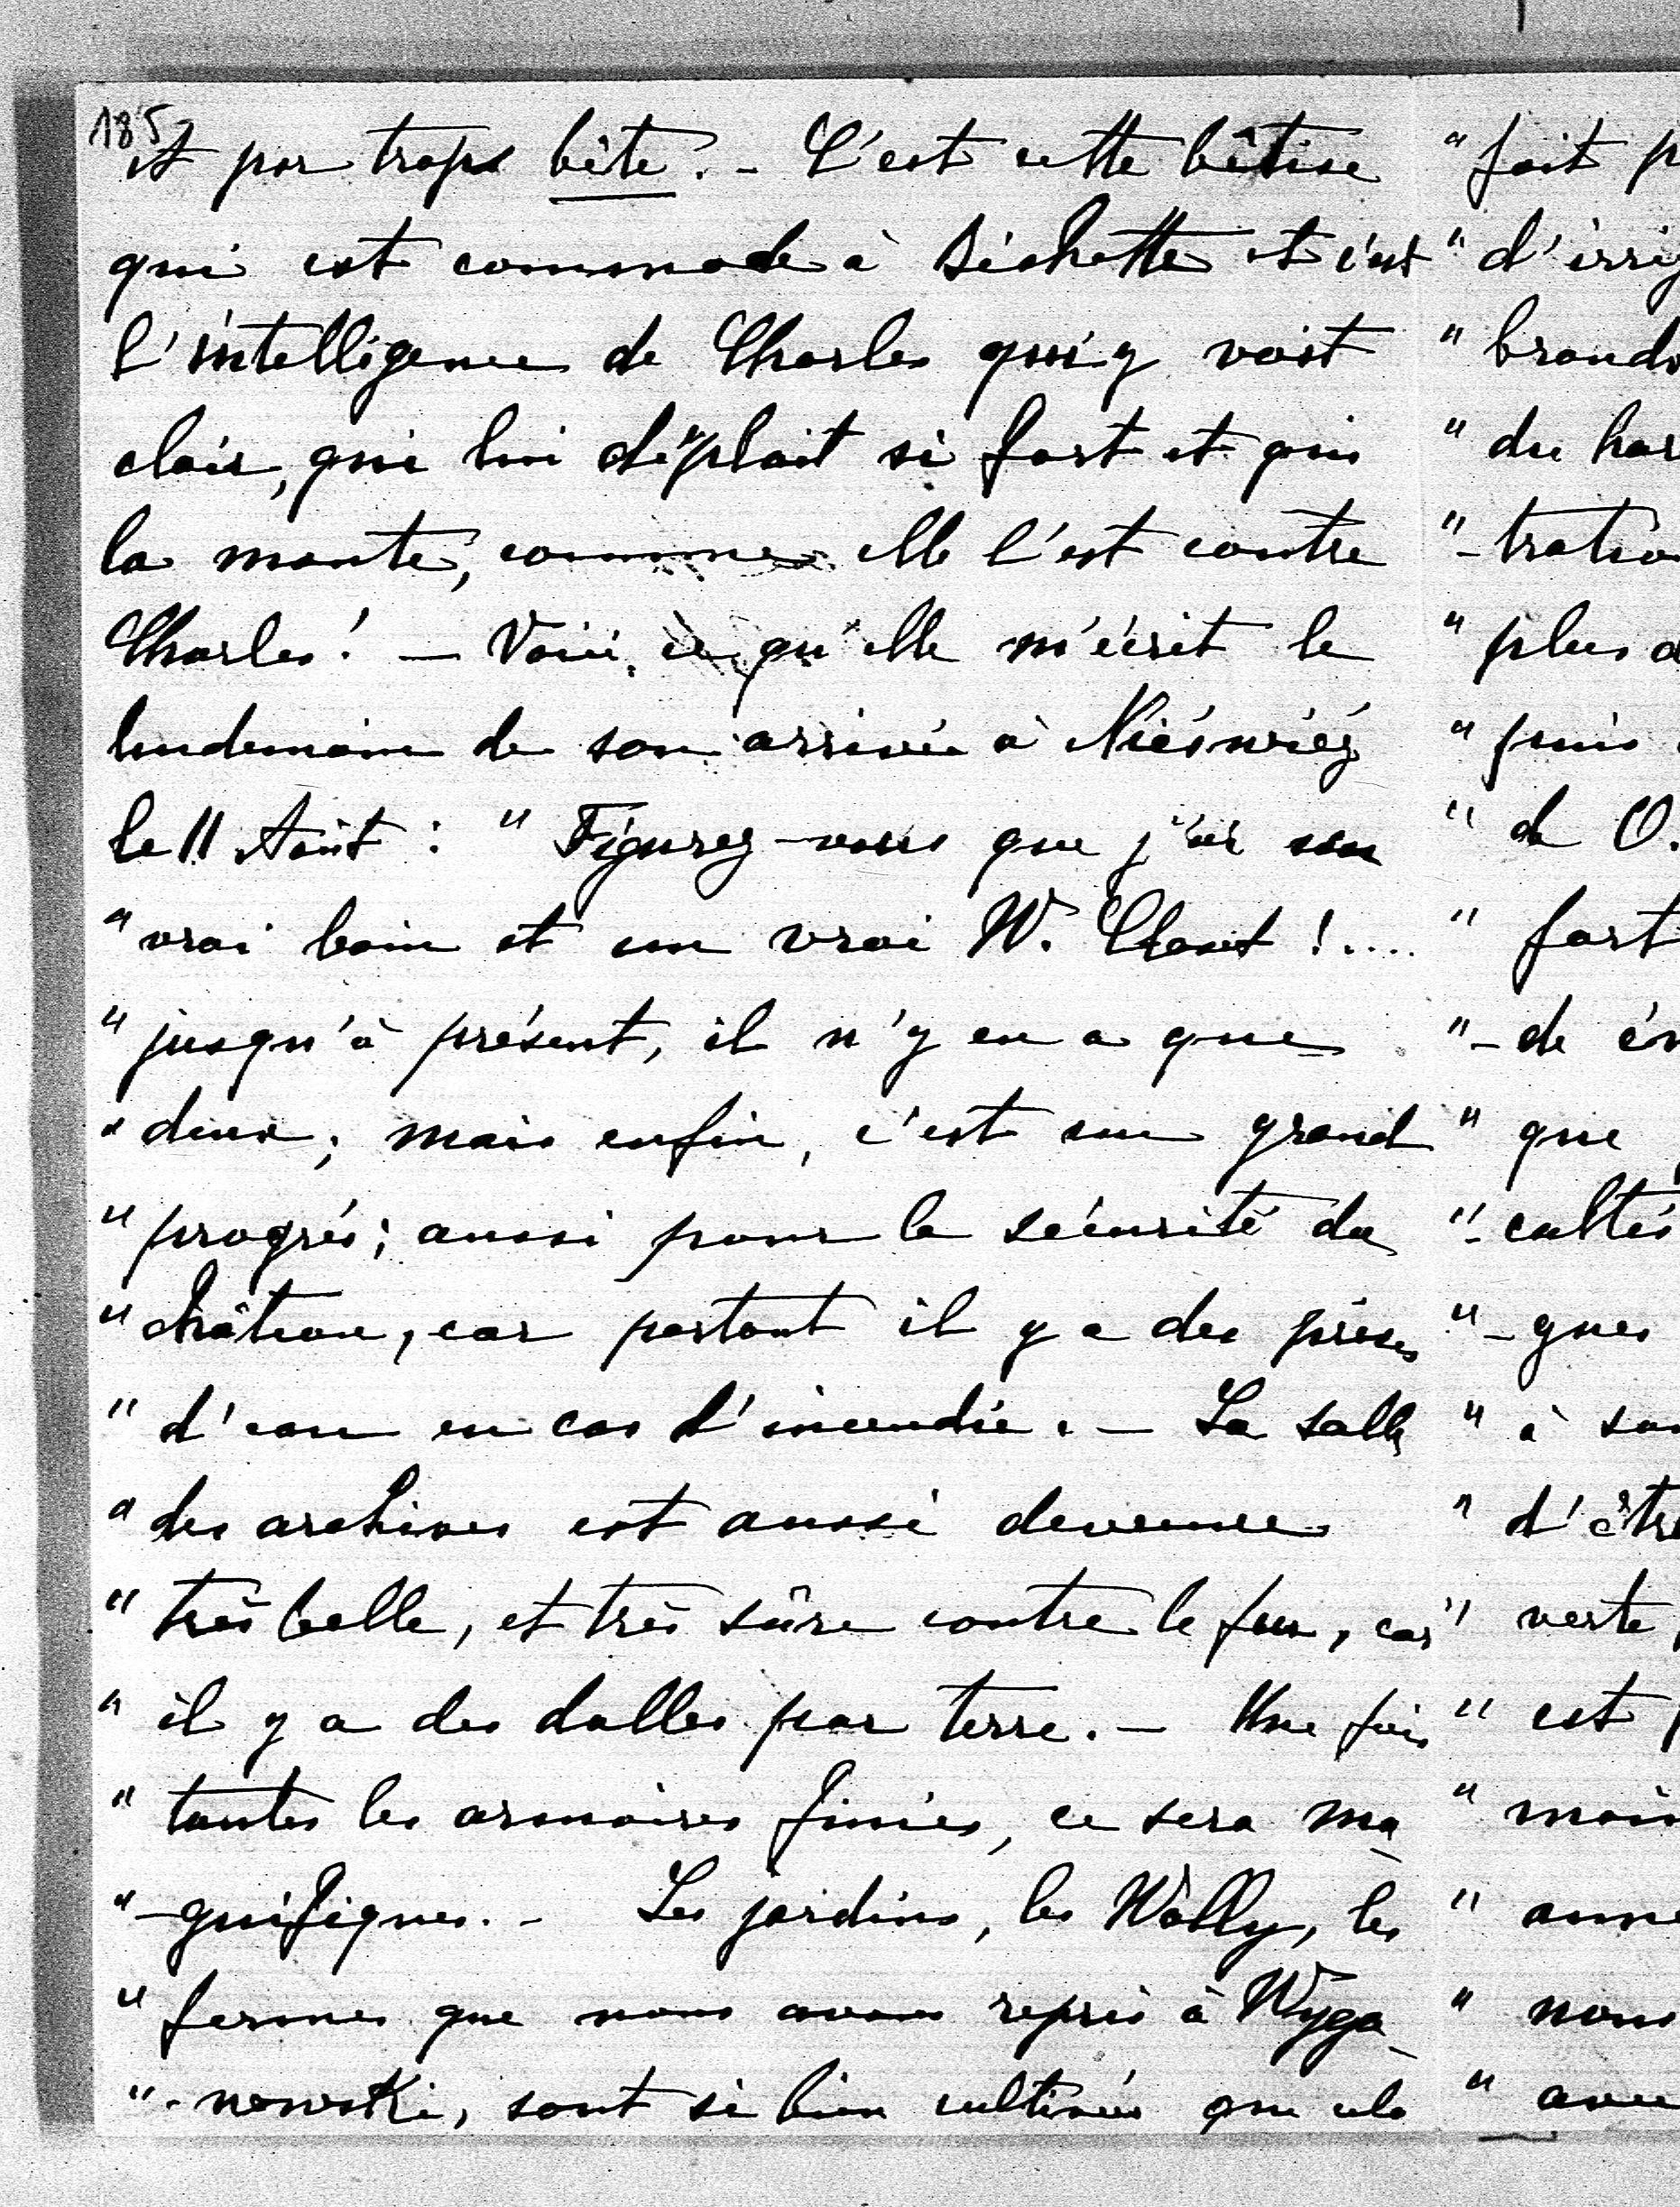 185
et par trop bête. - C'est cette bêtise
qui est commode à Bichette et c'est
l'intelligence de Charles qui y voit
clair, qui lui déplait si fort et qui
la monte, comme elle l'est contre
Charles! — Voici ce qu'elle m'écrit le
lendemain de son arrivée à Nieśwież
le 11 Août : " Figurez-vous que j'ai un
" vrai bain et un vrai W. Closet !....
" jusqu'à présent, il n'y en a que
" deux; mais enfin, c'est un grand
" progrés; aussi pour la sécurité du
" château, car partout il y a des prises
" d'eau en cas d'incendie. — La salle
" des archives est aussi devenue
" très belle, et très sûre contre le feu, car
" il y a des dalles par terre. — Une fois
" toutes les armoires finies, ce sera ma
"-gnifique. - Les jardins, les Wally, les
" fermes que nous avons repris à Wyga
"-nowski, sont si bien cultivées que cela
" fait
" d'irrig
" brands
" du har
"-tratio
" plus
" puis
" de O.
" fort
"-de
" que
"-cultés
"-ques
" à
" d'être
" verte
" est
" moin
" anne
" nous
" avec